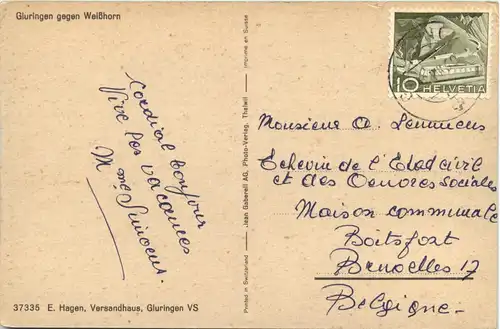 Gluringen gegen Weißhorn
Cordial bonjour
Vive les vacances
Mme
37335 E. Hagen, Versandhaus, Gluringen VS
Printed in Switzerland — Jean Gaberell AG, Photo-Verlag, Thalwil — Imprimé en Suisse
10 HELVETIA
Monsieur A.
Echevin de l'Etat civil
et des Oeuvres Sociales
Maison communale
Boitsfort
Bruxelles 17
Belgique